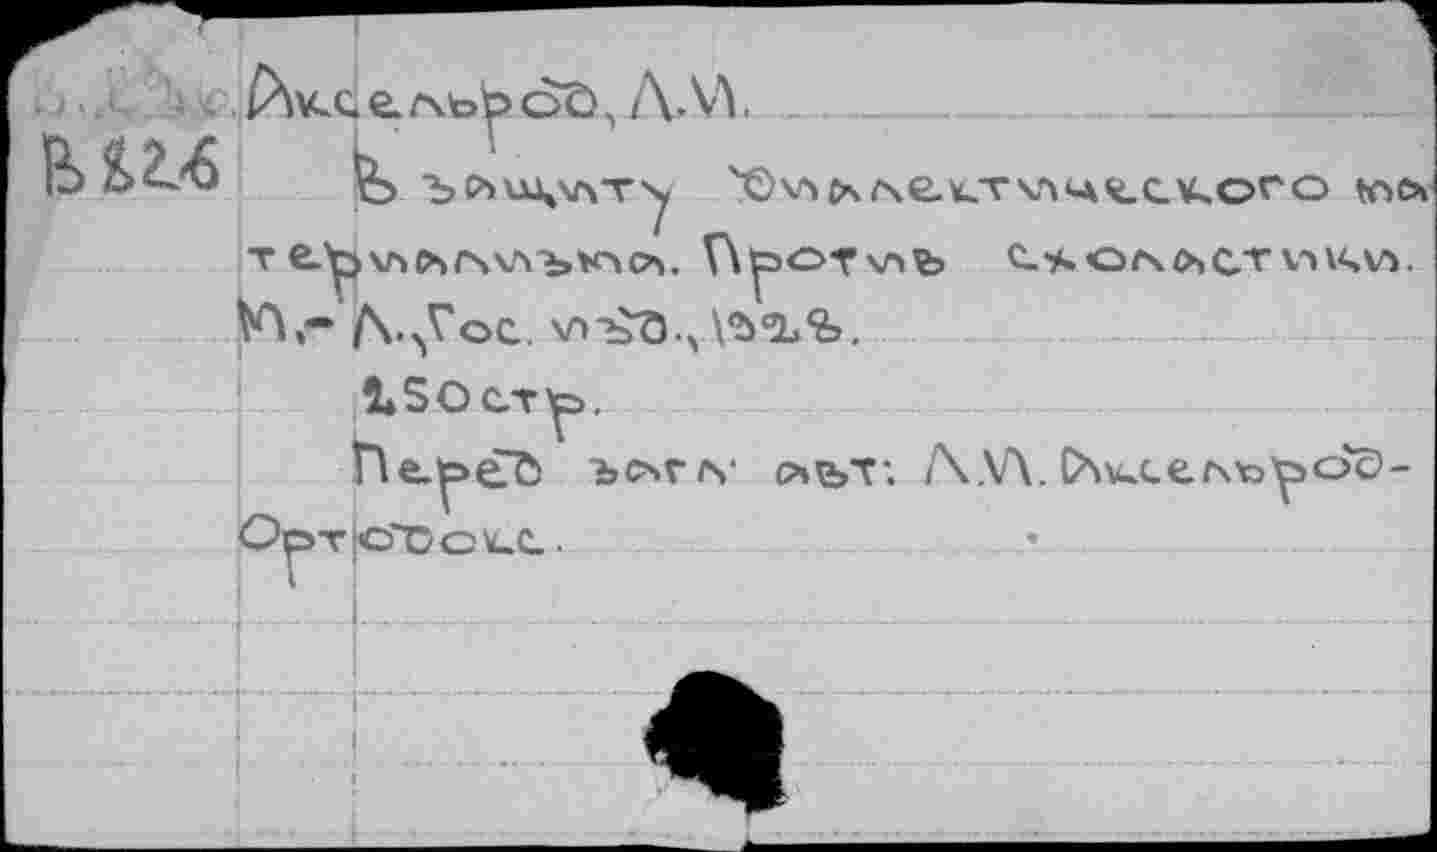 Аксельрод, Л.И.
В защиту диалектического ма
В826
териализма. Против схоластики.
М.-Л., Гос. изд., 1928.
250 стр.
Перед загл. авт: Л.И. Аксельрод-
Ортодокс.